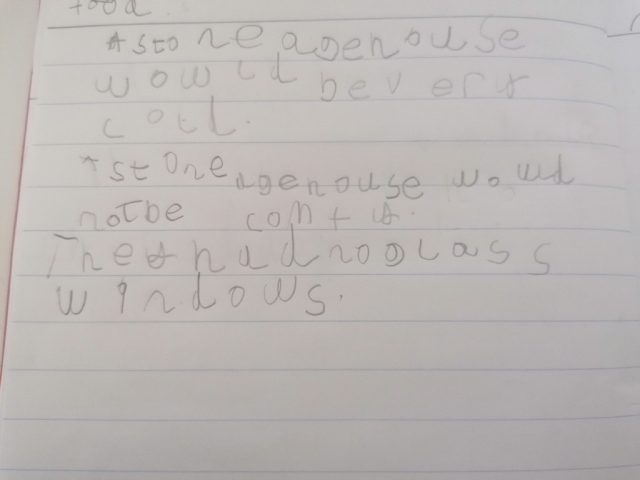 food.
A stone age house
wowld be very
cotl.
A stone age house wowld
not be comfy.
They had no glass
windows.